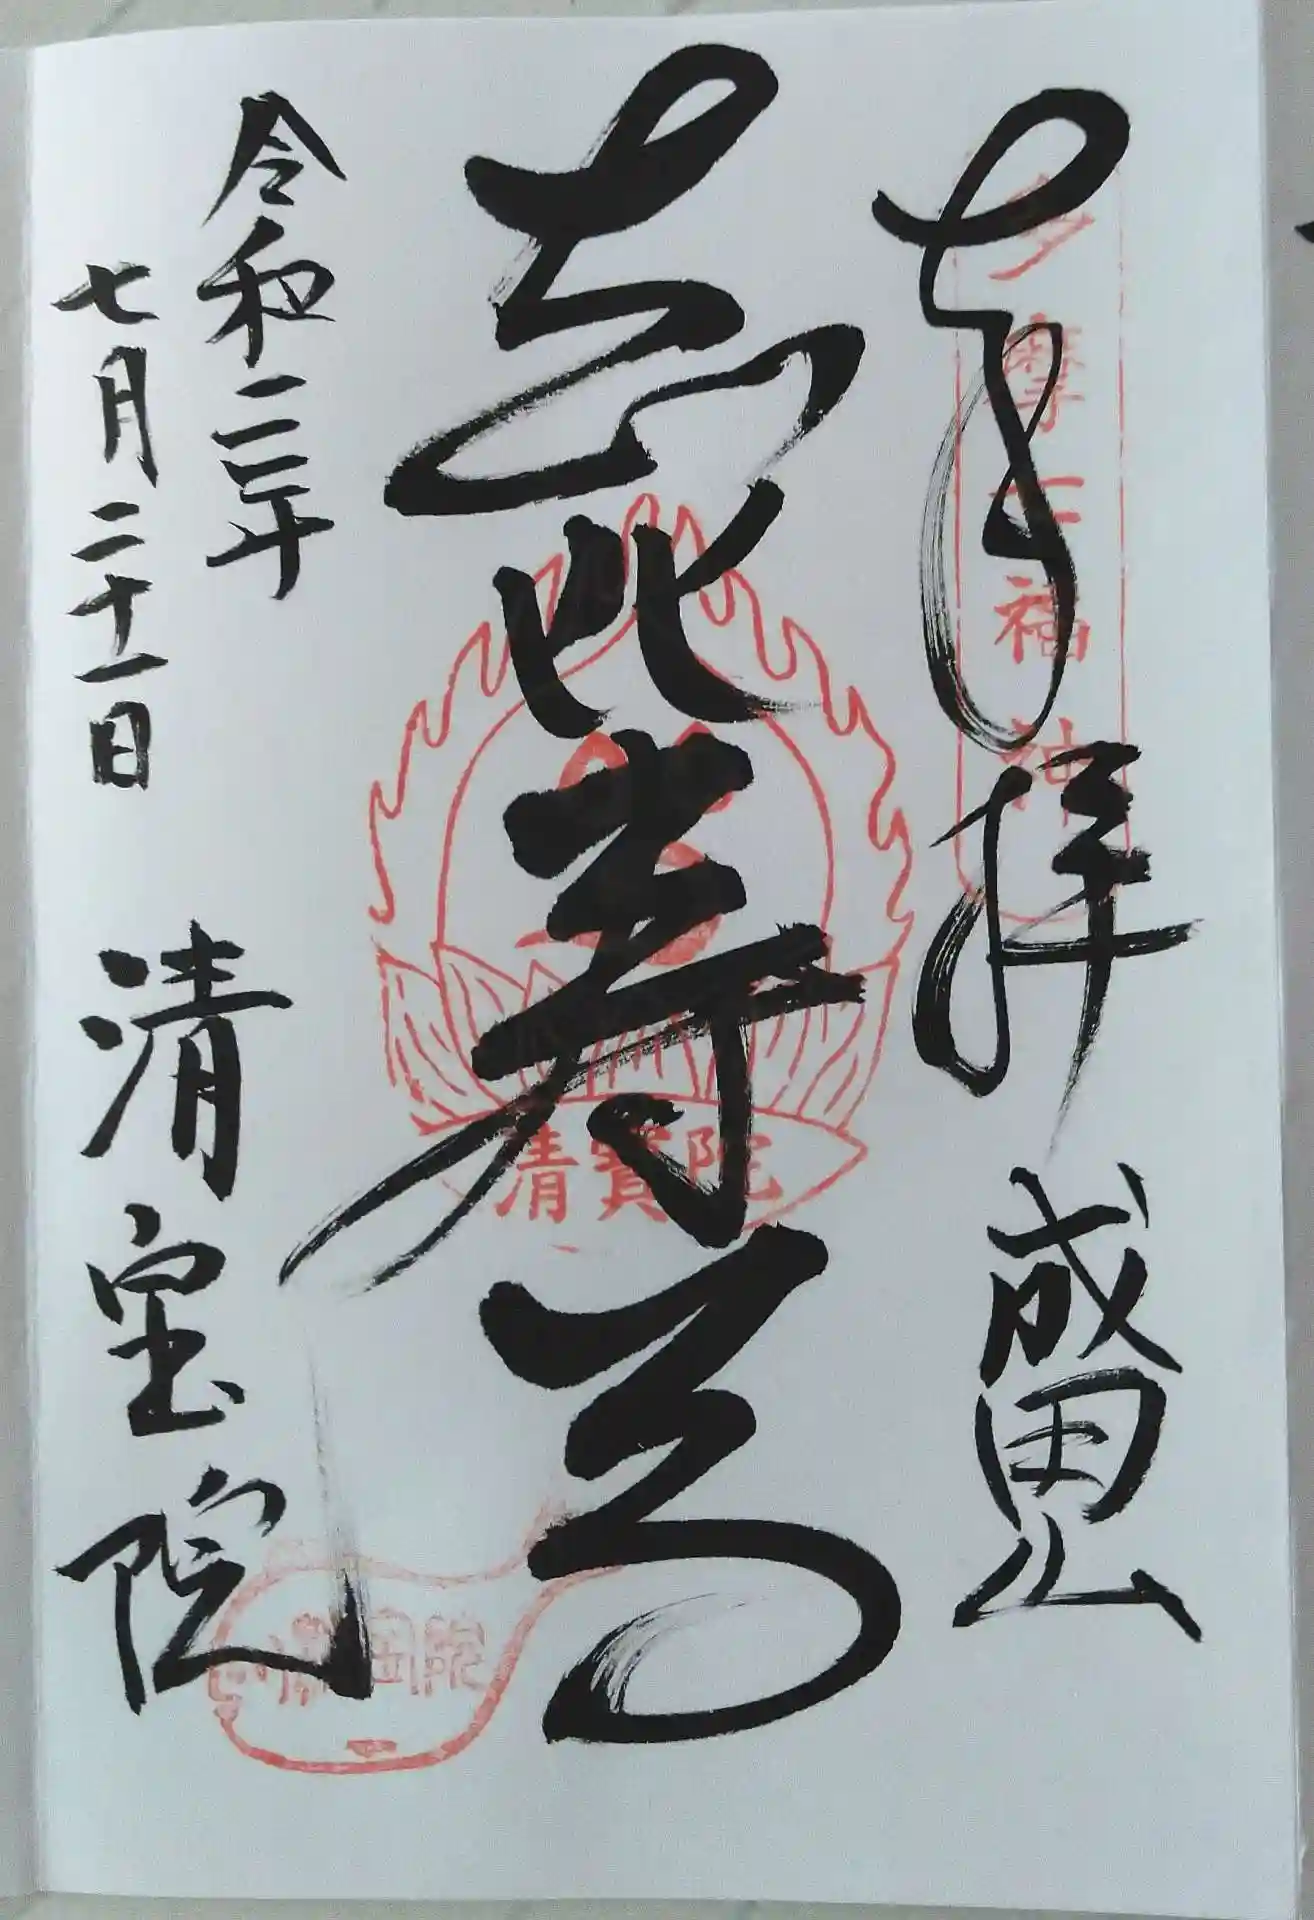 多摩七福神
奉拝 成田山
恵比寿尊
清寶院
令和二年
七月二十一日 清宝院